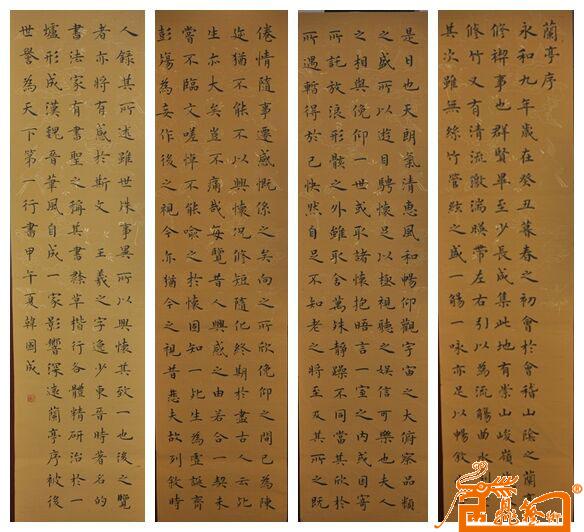 蘭亭序
永和九年歲在癸丑暮春之初會於會稽山陰之蘭亭
修禊事也群賢畢至少長咸集此地有崇山峻嶺
修竹又有清流激湍映帶左右引以為流觴曲水列
其次雖無絲竹管絃之盛一觴一詠亦足以暢敘
是日也天朗氣清惠風和暢仰觀宇宙之大俯察品類
之盛所以遊目騁懷足以極視聽之娛信可樂也夫人
之相與俯仰一世或取諸懷抱晤言一室之內或因寄
所託放浪形骸之外雖取舍萬殊靜躁不同當其欣於
所遇暫得於己快然自足不知老之將至及其所之既
倦情隨事遷感慨係之矣向之所欣俛仰之間已為陳
迹猶不能不以興懷況修短隨化終期於盡古人云死
生亦大矣豈不痛哉每覽昔人興感之由若合一契未
嘗不臨文嗟悼不能喻之於懷固知一死生為虛誕齊
彭殤為妄作後之視今亦猶今之視昔悲夫故列敘時
人錄其所述雖世殊事異所以興懷其致一也後之覽
者亦將有感於斯文 王羲之字逸少東晉時著名的
書法家有書聖之稱其書隸草楷行各體精研治於一
爐形成漢魏晉華風自成一家影響深遠蘭亭序被後
世譽為天下第一行書甲午夏韓國成